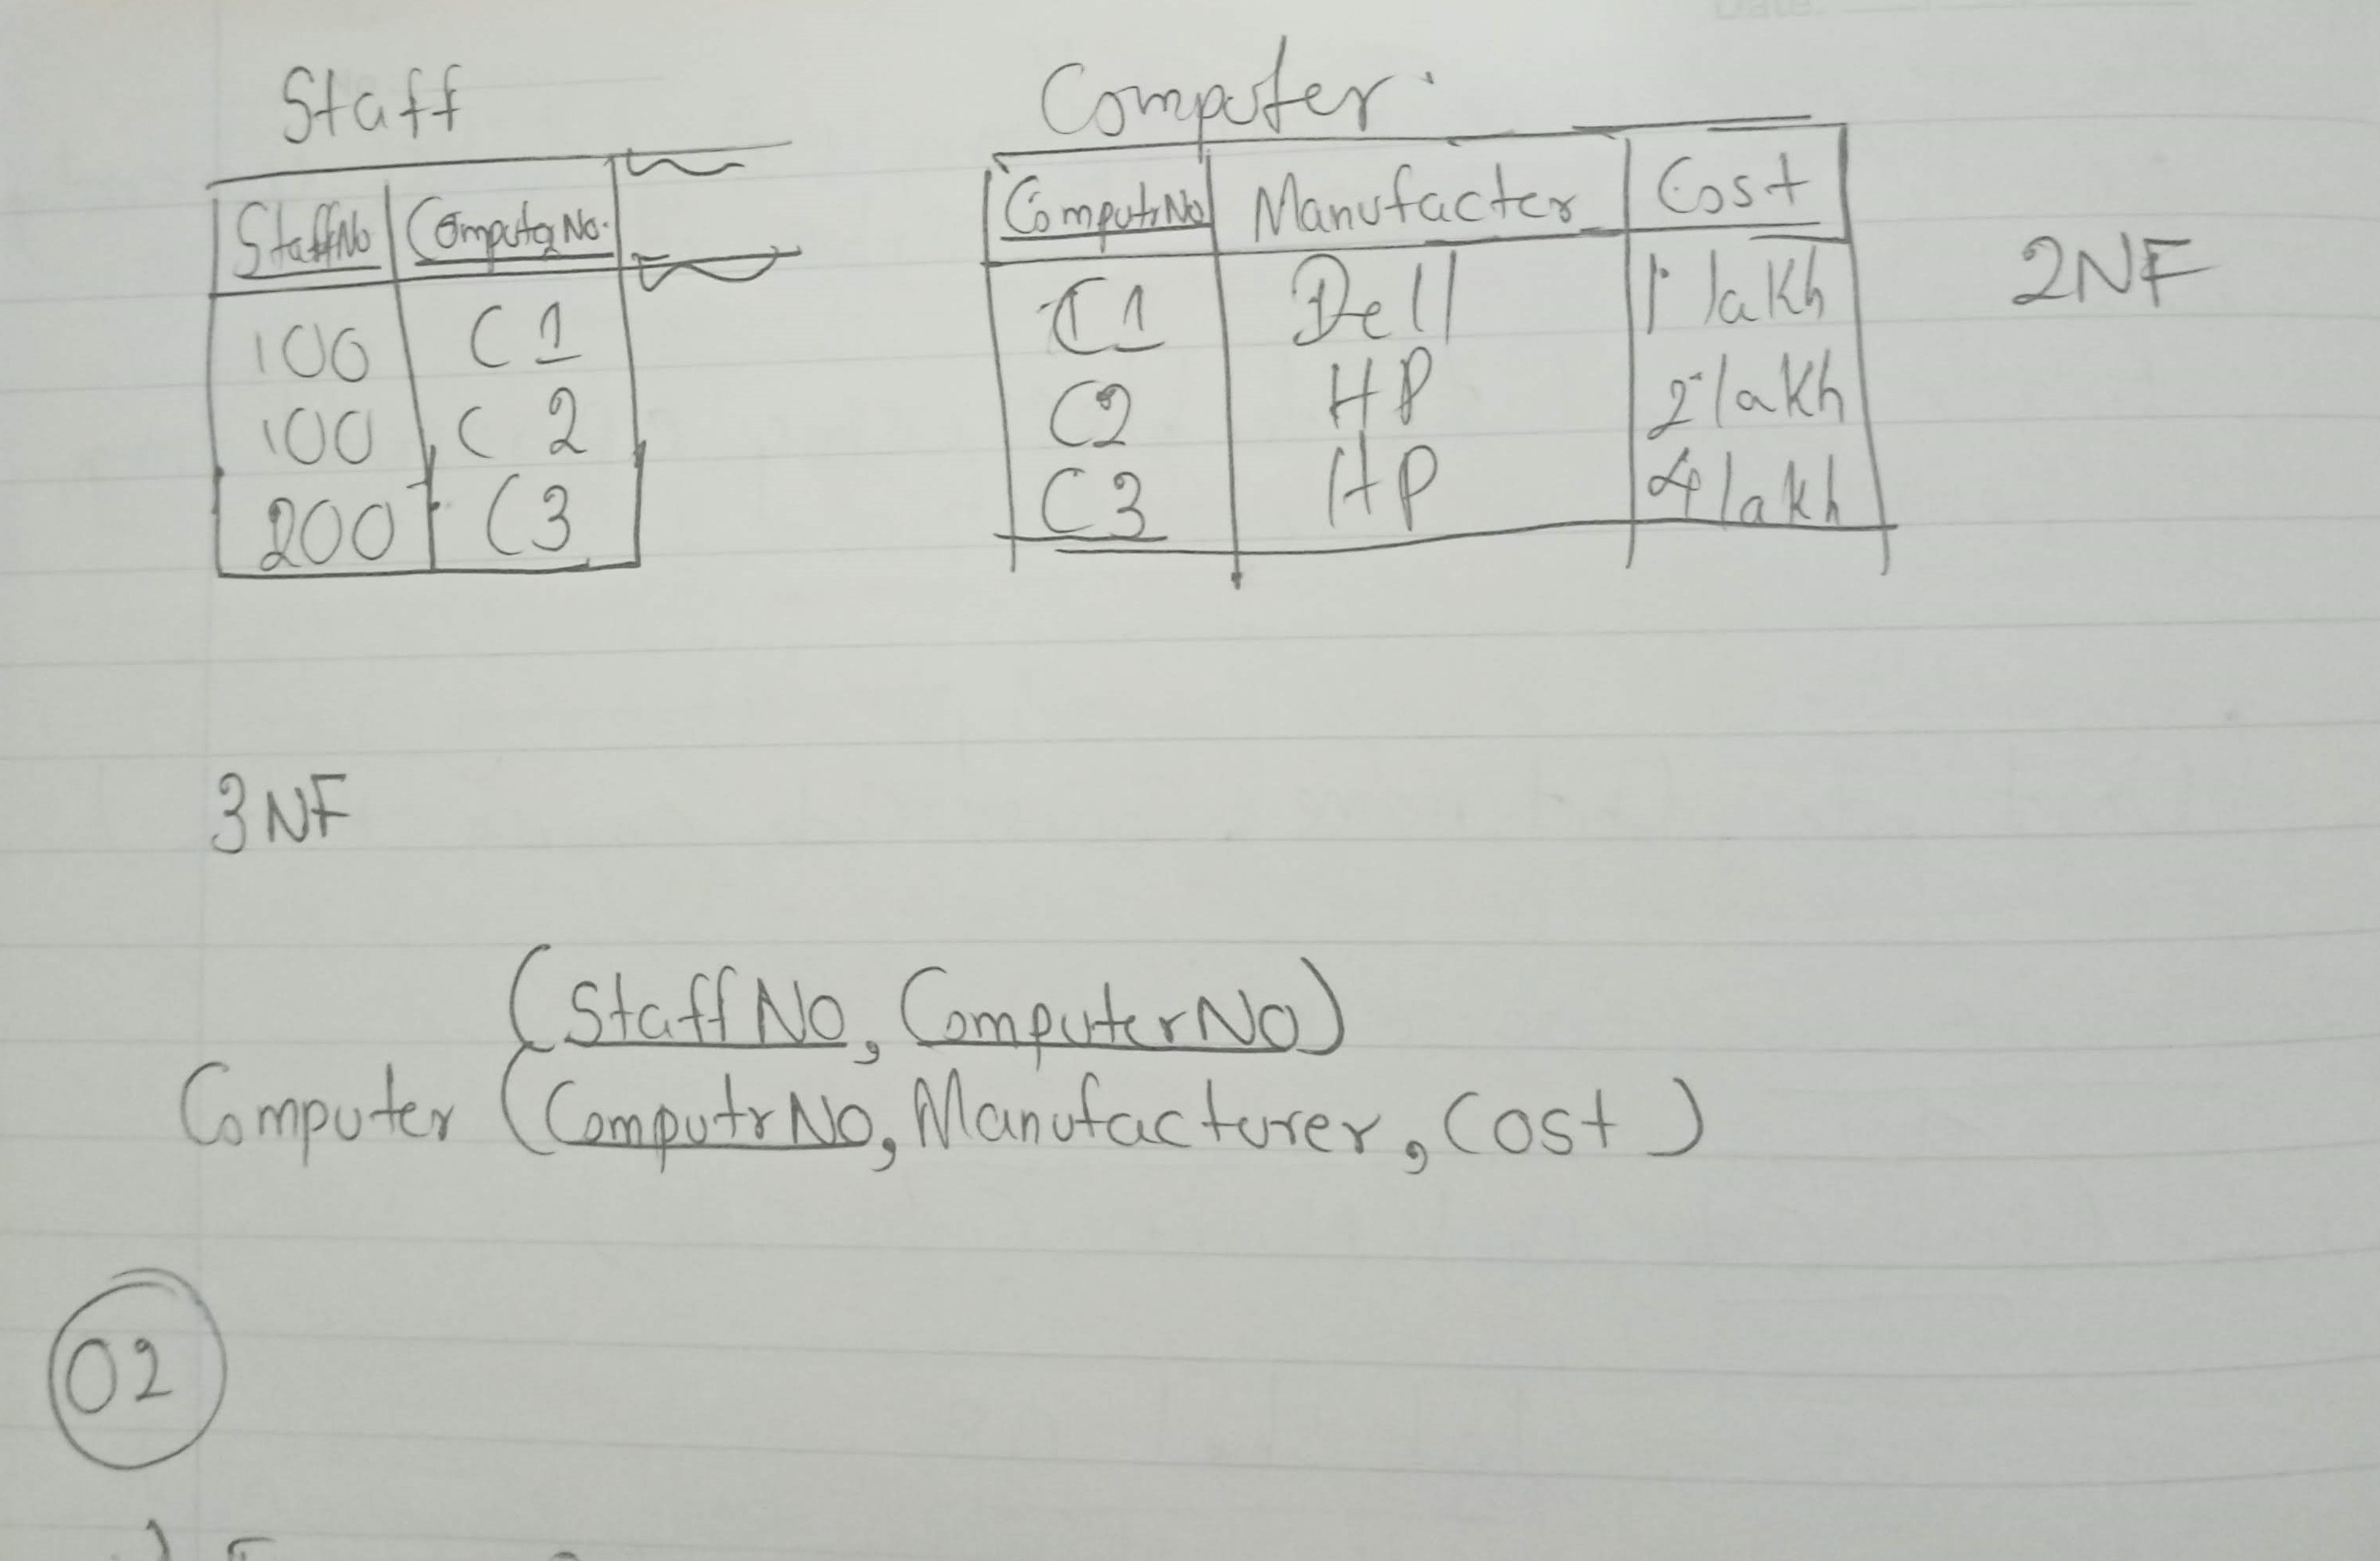 Staff
StaffNo ComputerNo.
100 C1
100 C2
200 C3
Computer
ComputrNo Manufacter Cost
C1 Dell 1 lakh
C2 HP 2 lakh
C3 HP 4 lakh
2NF
3NF
(StaffNo, ComputerNo)
Computer (ComputrNo, Manufacturer, Cost)
02